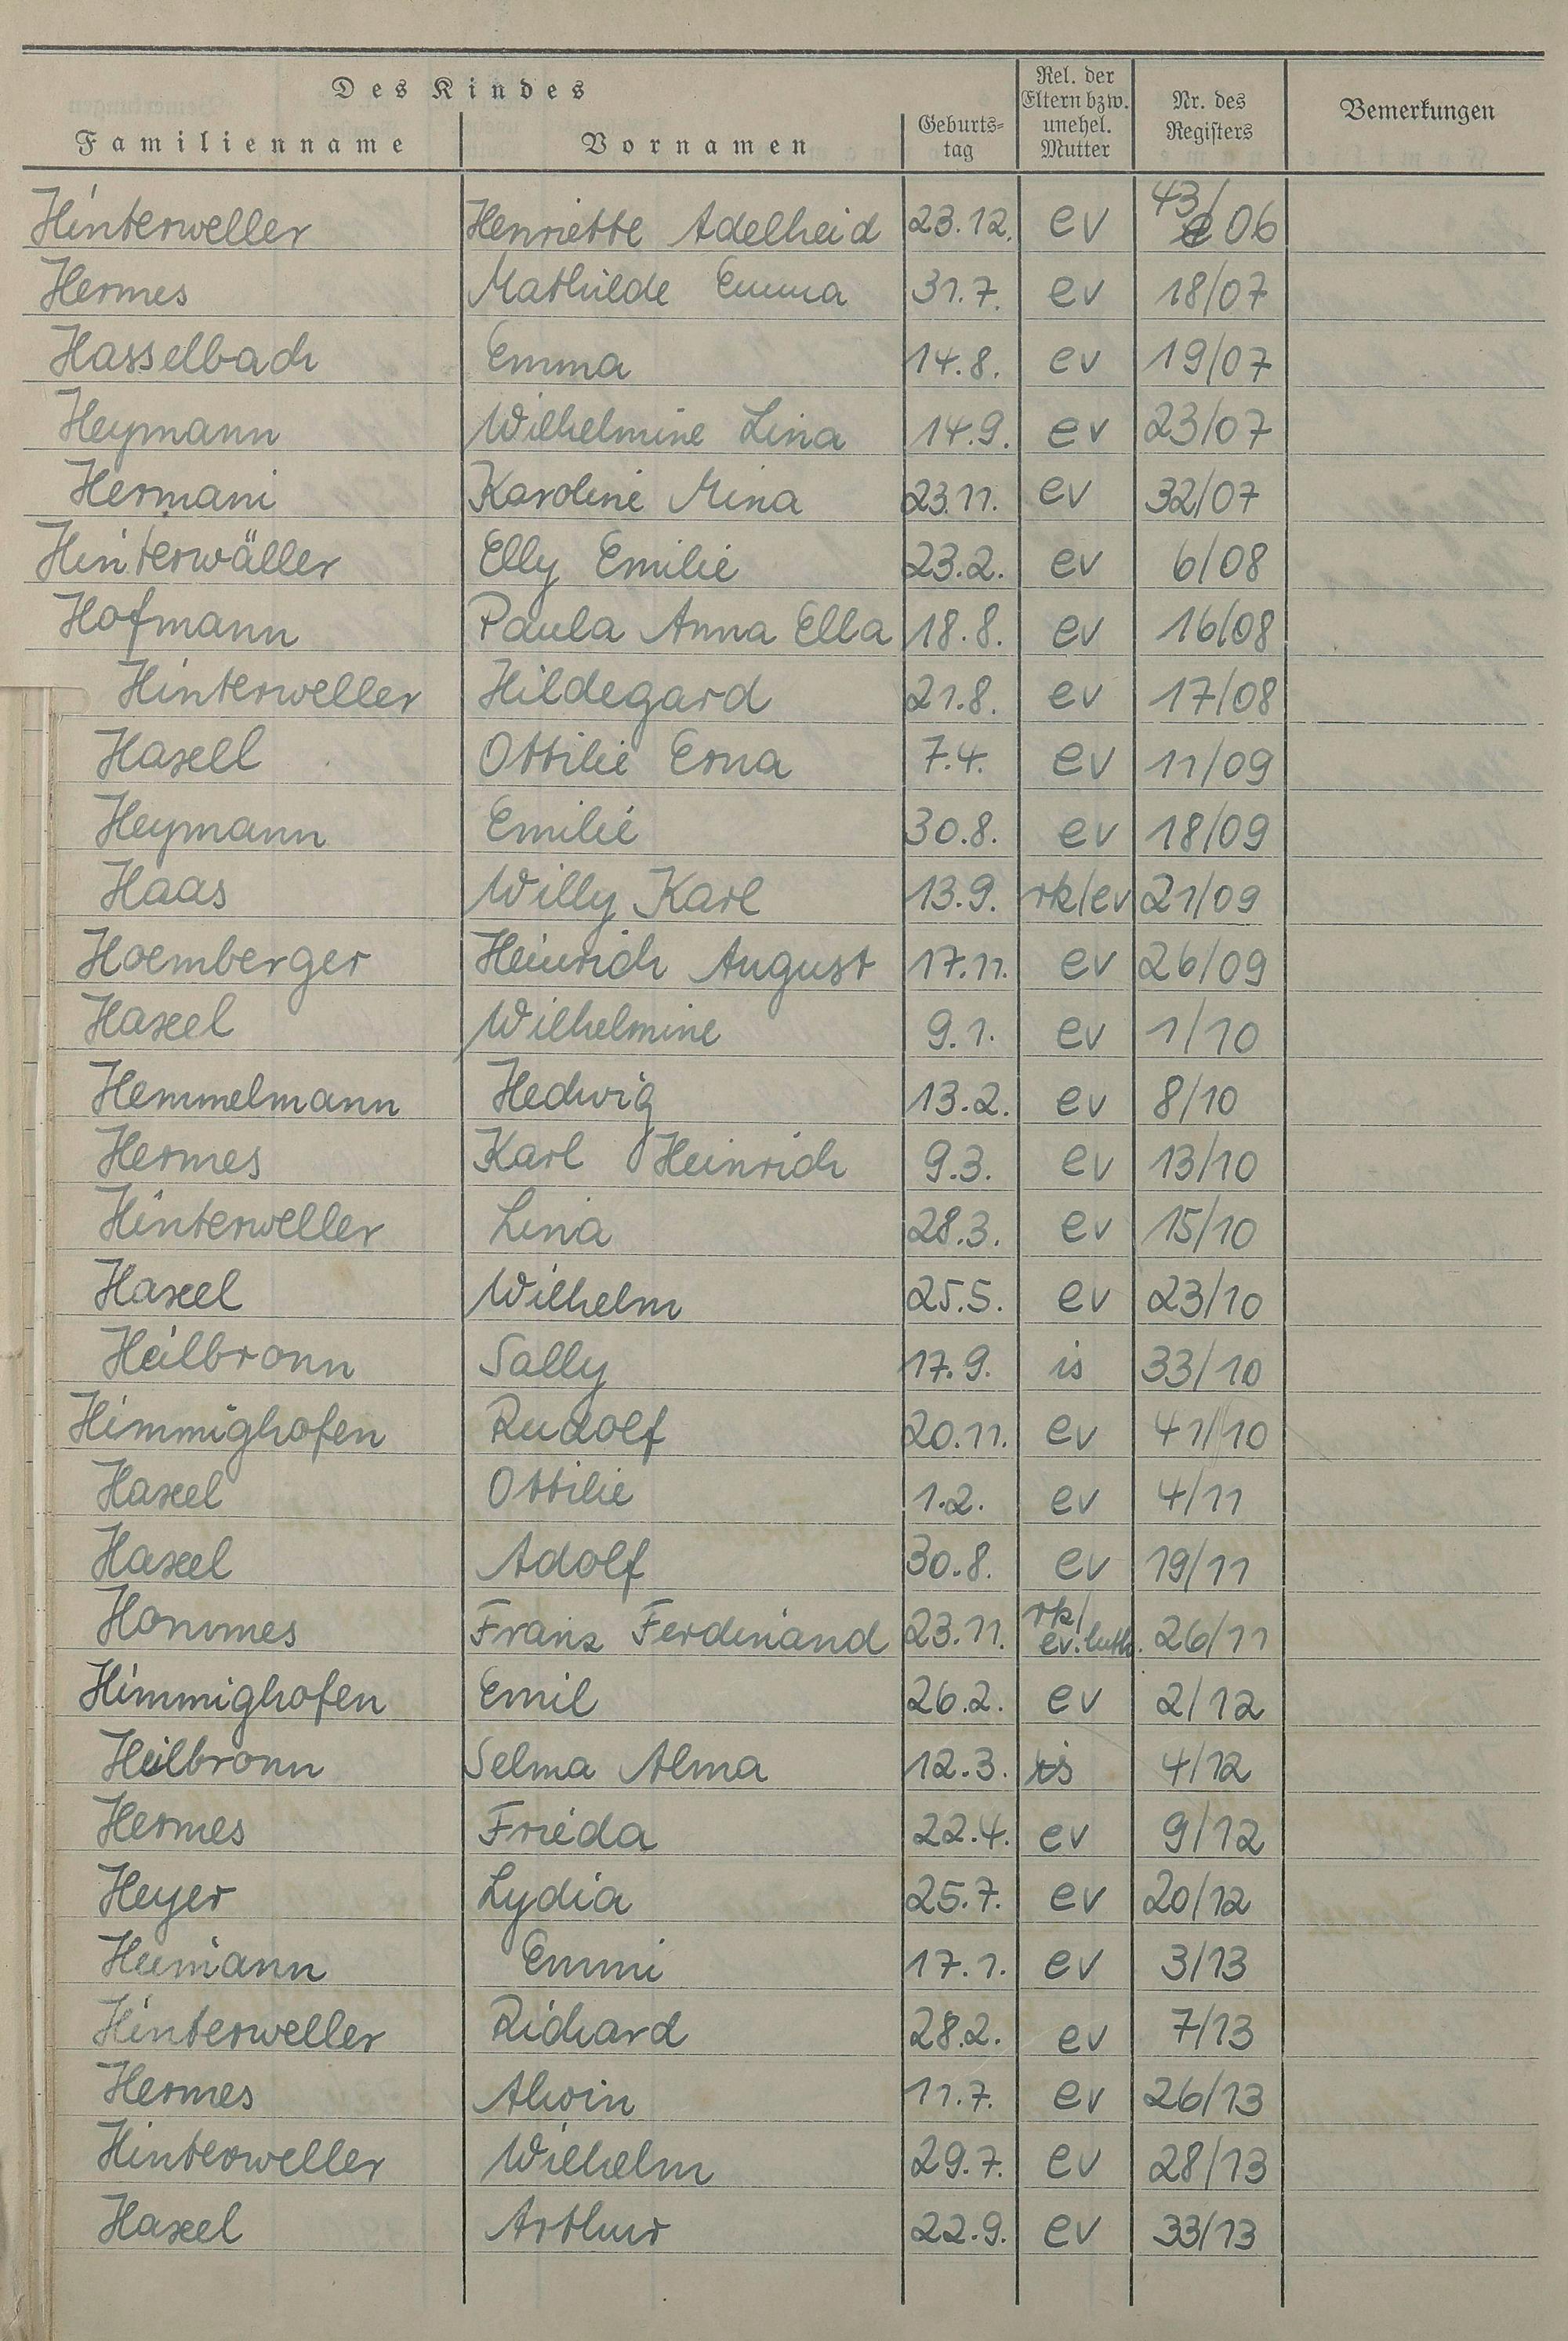 Des Kindes
Familienname Vornamen Geburts-tag Rel. der Eltern bzw. unehel. Mutter Nr. des Registers Bemerkungen
Hinterweller Henriette Adelheid 23.12. ev 43/06
Hermes Mathilde Emma 31.7. ev 18/07
Hasselbach Emma 14.8. ev 19/07
Heymann Wilhelmine Lina 14.9. ev 23/07
Hermani Karoline Mina 23.11. ev 32/07
Hinterwäller Elly Emilie 23.2. ev 6/08
Hofmann Paula Anna Ella 18.8. ev 16/08
Hinterweller Hildegard 21.8. ev 17/08
Haxell Ottilie Erna 7.4. ev 11/09
Heymann Emilie 30.8. ev 18/09
Haas Willy Karl 13.9. rk/ev 21/09
Hoemberger Heinrich August 17.11. ev 26/09
Haxel Wilhelmine 9.1. ev 1/10
Hemmelmann Hedwig 13.2. ev 8/10
Hermes Karl Heinrich 9.3. ev 13/10
Hinterweller Lina 28.3. ev 15/10
Haxel Wilhelm 25.5. ev 23/10
Heilbronn Sally 17.9. is 33/10
Himmighofen Rudolf 20.11. ev 41/10
Haxel Ottilie 1.2. ev 4/11
Haxel Adolf 30.8. ev 19/11
Hommes Franz Ferdinand 23.11. rk/ev.luth. 26/11
Himmighofen Emil 26.2. ev 2/12
Heilbronn Selma Alma 12.3. is 4/12
Hermes Frieda 22.4. ev 9/12
Heyer Lydia 25.7. ev 20/12
Heimann Emmi 17.1. ev 3/13
Hinterweller Richard 28.2. ev 7/13
Hermes Alwin 11.7. ev 26/13
Hinterweller Wilhelm 29.7. ev 28/13
Haxel Arthur 22.9. ev 33/13